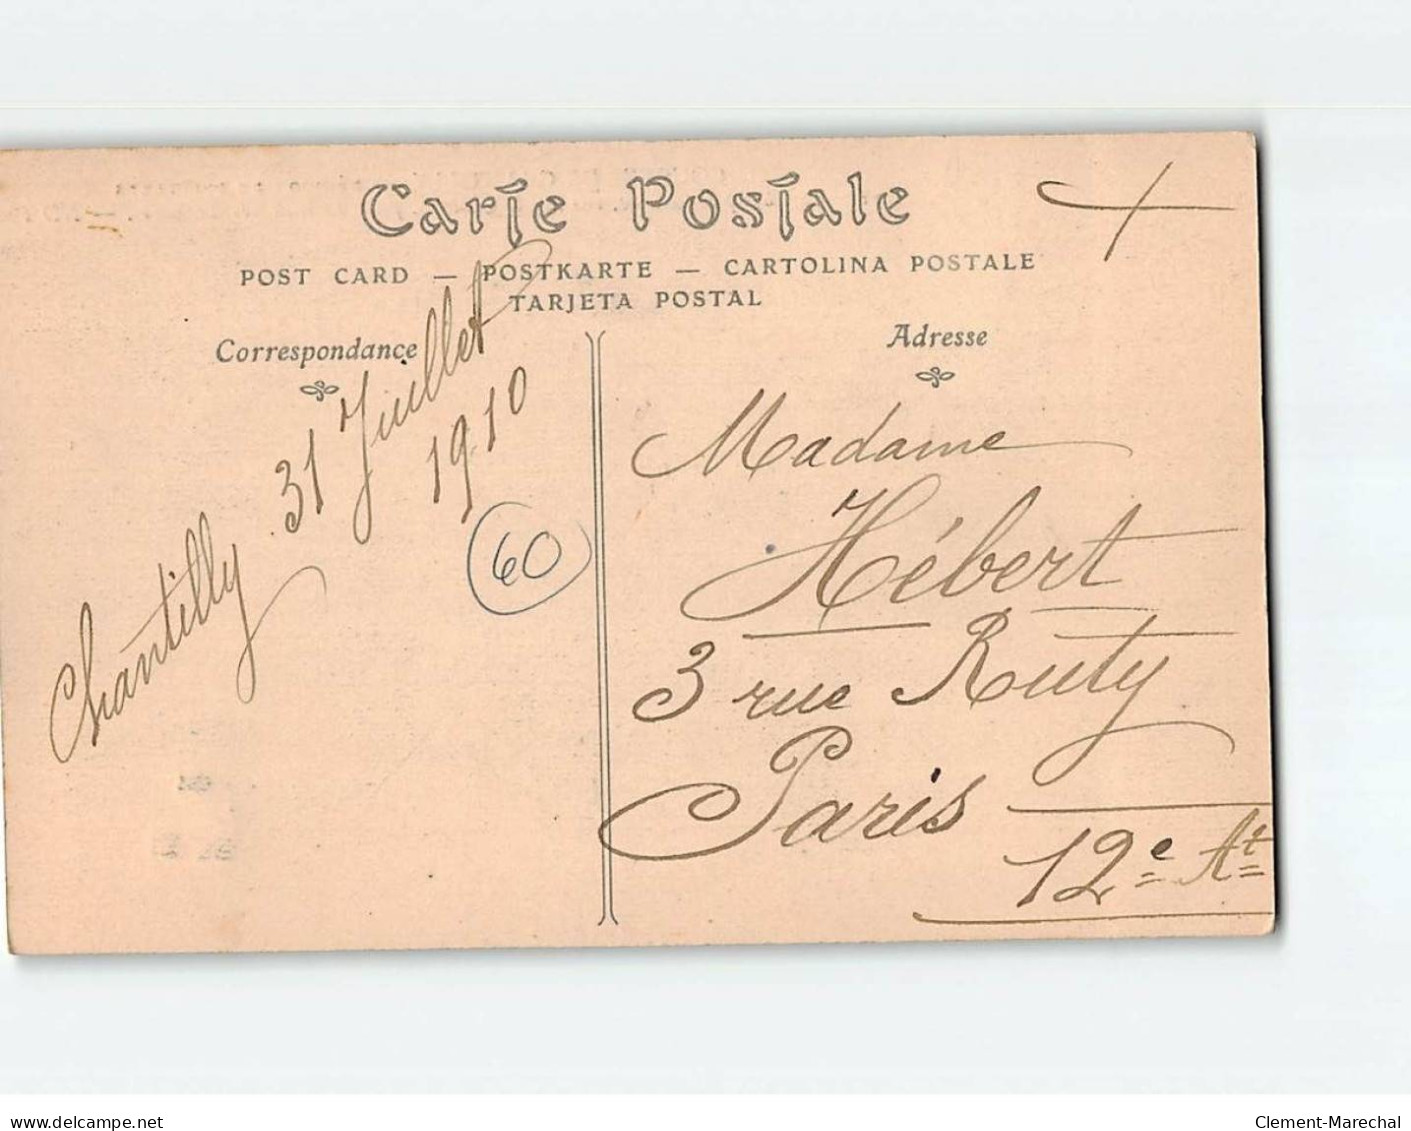 Carte Postale
POST CARD — POSTKARTE — CARTOLINA POSTALE
TARJETA POSTAL
Correspondance
Adresse
Chantilly 31 Juillet
1910
60
Madame
Hébert
3 rue Ruty
Paris
12e At
www.delcampe.net
Clement-Marechal